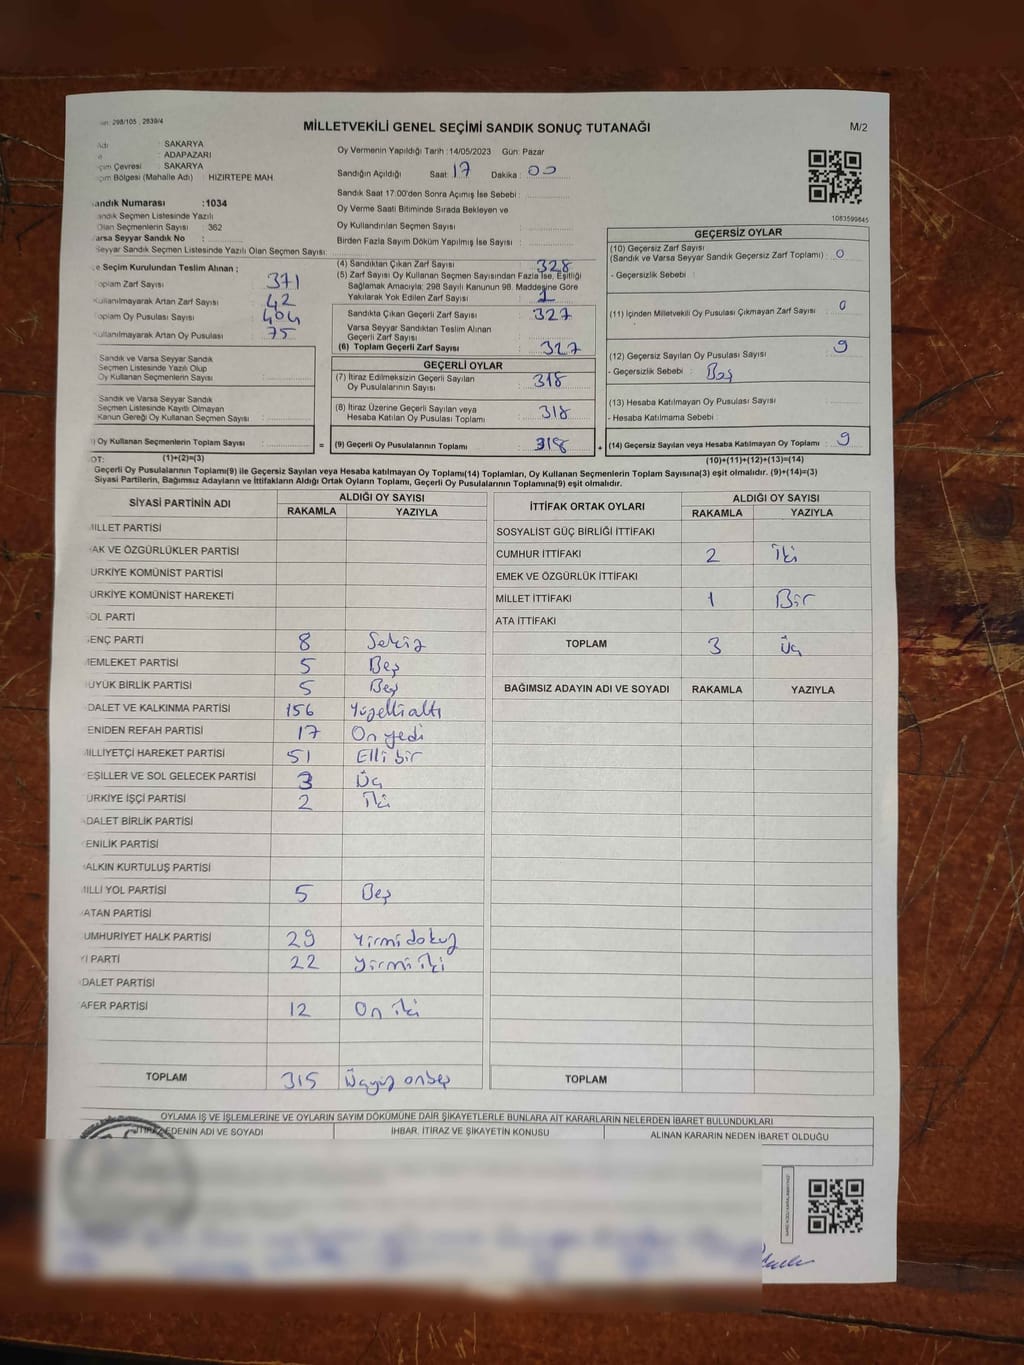 298/105 , 2839/4
MİLLETVEKİLİ GENEL SEÇİMİ SANDIK SONUÇ TUTANAĞI
M/2
: SAKARYA
: ADAPAZARI
Çevresi : SAKARYA
Bölgesi (Mahalle Adı) : HIZIRTEPE MAH.
andık Numarası :1034
andık Seçmen Listesinde Yazılı
Olan Seçmenlerin Sayısı : 362
arsa Seyyar Sandık No :
Seyyar Sandık Seçmen Listesinde Yazılı Olan Seçmen Sayısı :
Oy Vermenin Yapıldığı Tarih :14/05/2023 Gün: Pazar
Sandığın Açıldığı Saat : 17 Dakika : 00
Sandık Saat 17:00'den Sonra Açımış İse Sebebi :
Oy Verme Saati Bitiminde Sırada Bekleyen ve
Oy Kullandırılan Seçmen Sayısı :
Birden Fazla Sayım Döküm Yapılmış İse Sayısı :
1083599845
e Seçim Kurulundan Teslim Alınan ;
oplam Zarf Sayısı : 371
ullanılmayarak Artan Zarf Sayısı : 42
oplam Oy Pusulası Sayısı : 404
ullanılmayarak Artan Oy Pusulası : 75
Sandık ve Varsa Seyyar Sandık
Seçmen Listesinde Yazılı Olup
Oy Kullanan Seçmenlerin Sayısı :
Sandık ve Varsa Seyyar Sandık
Seçmen Listesinde Kayıtlı Olmayan
Kanun Gereği Oy Kullanan Seçmen Sayısı :
) Oy Kullanan Seçmenlerin Toplam Sayısı :
(1)+(2)=(3)
(4) Sandıktan Çıkan Zarf Sayısı : 328
(5) Zarf Sayısı Oy Kullanan Seçmen Sayısından Fazla İse, Eşitliği
Sağlamak Amacıyla; 298 Sayılı Kanunun 98. Maddesine Göre
Yakılarak Yok Edilen Zarf Sayısı : 1
Sandıkta Çıkan Geçerli Zarf Sayısı : 327
Varsa Seyyar Sandıktan Teslim Alınan
Geçerli Zarf Sayısı :
(6) Toplam Geçerli Zarf Sayısı : 327
GEÇERLİ OYLAR
(7) İtiraz Edilmeksizin Geçerli Sayılan
Oy Pusulalarının Sayısı : 318
(8) İtiraz Üzerine Geçerli Sayılan veya
Hesaba Katılan Oy Pusulası Toplamı : 318
= (9) Geçerli Oy Pusulalarının Toplamı : 318 +
GEÇERSİZ OYLAR
(10) Geçersiz Zarf Sayısı
(Sandık ve Varsa Seyyar Sandık Geçersiz Zarf Toplamı) : 0
- Geçersizlik Sebebi :
(11) İçinden Milletvekili Oy Pusulası Çıkmayan Zarf Sayısı : 0
(12) Geçersiz Sayılan Oy Pusulası Sayısı : 9
- Geçersizlik Sebebi : Boş
(13) Hesaba Katılmayan Oy Pusulası Sayısı :
- Hesaba Katılmama Sebebi :
(14) Geçersiz Sayılan veya Hesaba Katılmayan Oy Toplamı : 9
(10)+(11)+(12)+(13)=(14)
OT:
Geçerli Oy Pusulalarının Toplamı(9) ile Geçersiz Sayılan veya Hesaba katılmayan Oy Toplamı(14) Toplamları, Oy Kullanan Seçmenlerin Toplam Sayısına(3) eşit olmalıdır. (9)+(14)=(3)
Siyasi Partilerin, Bağımsız Adayların ve İttifakların Aldığı Ortak Oyların Toplamı, Geçerli Oy Pusulalarının Toplamına(9) eşit olmalıdır.
SİYASİ PARTİNİN ADI ALDIĞI OY SAYISI
RAKAMLA YAZIYLA
MİLLET PARTİSİ
AK VE ÖZGÜRLÜKLER PARTİSİ
ÜRKİYE KOMÜNİST PARTİSİ
ÜRKİYE KOMÜNİST HAREKETİ
OL PARTİ
ENÇ PARTİ 8 Sekiz
EMLEKET PARTİSİ 5 Beş
ÜYÜK BİRLİK PARTİSİ 5 Beş
DALET VE KALKINMA PARTİSİ 156 Yüzelli altı
ENİDEN REFAH PARTİSİ 17 On yedi
MİLLİYETÇİ HAREKET PARTİSİ 51 Elli bir
EŞİLLER VE SOL GELECEK PARTİSİ 3 Üç
ÜRKİYE İŞÇİ PARTİSİ 2 İki
DALET BİRLİK PARTİSİ
ENİLİK PARTİSİ
ALKIN KURTULUŞ PARTİSİ
MİLLİ YOL PARTİSİ 5 Beş
ATAN PARTİSİ
UMHURİYET HALK PARTİSİ 29 Yirmi dokuz
Yİ PARTİ 22 Yirmi iki
DALET PARTİSİ
AFER PARTİSİ 12 On iki
TOPLAM 315 Üçyüz onbeş
İTTİFAK ORTAK OYLARI ALDIĞI OY SAYISI
RAKAMLA YAZIYLA
SOSYALİST GÜÇ BİRLİĞİ İTTİFAKI
CUMHUR İTTİFAKI 2 İki
EMEK VE ÖZGÜRLÜK İTTİFAKI
MİLLET İTTİFAKI 1 Bir
ATA İTTİFAKI
TOPLAM 3 Üç
BAĞIMSIZ ADAYIN ADI VE SOYADI RAKAMLA YAZIYLA
TOPLAM
OYLAMA İŞ VE İŞLEMLERİNE VE OYLARIN SAYIM DÖKÜMÜNE DAİR ŞİKAYETLERLE BUNLARA AİT KARARLARIN NELERDEN İBARET BULUNDUKLARI
İTİRAZ EDENİN ADI VE SOYADI İHBAR, İTİRAZ VE ŞİKAYETİN KONUSU ALINAN KARARIN NEDEN İBARET OLDUĞU